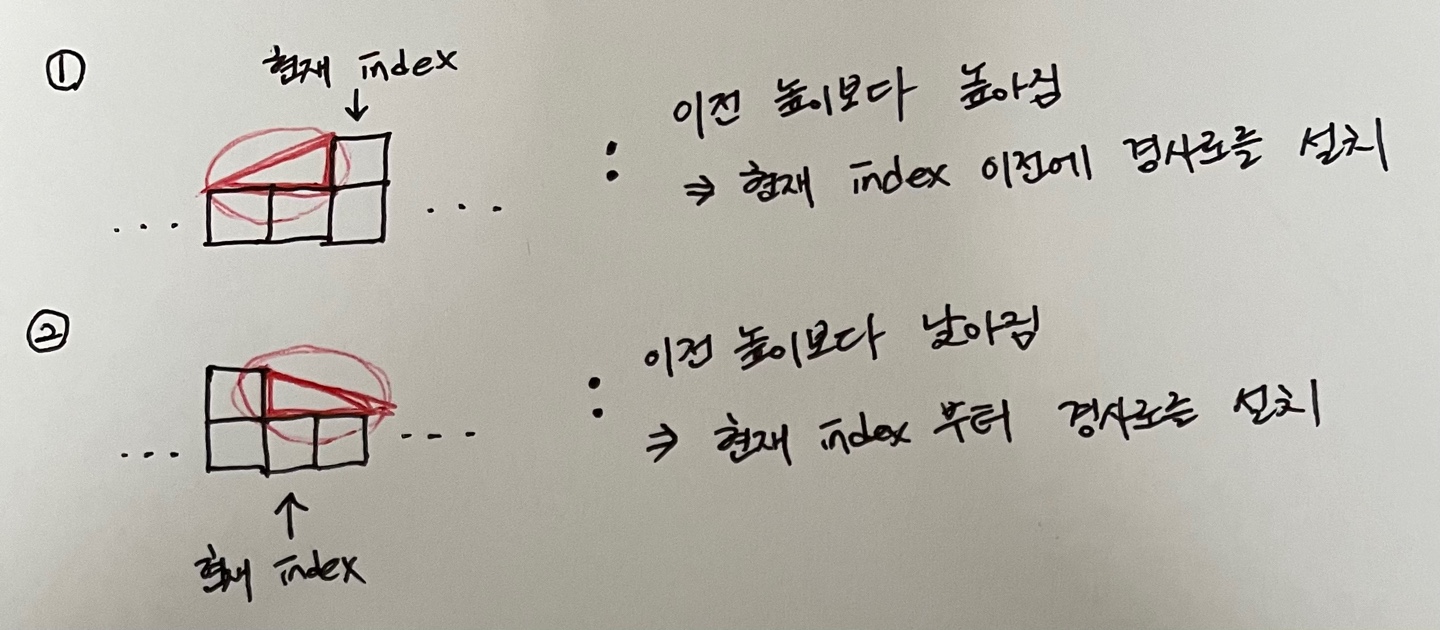 ①
현재 index
↓
: 이전 높이보다 높아짐
⇒ 현재 index 이전에 경사로를 설치
... ...
②
: 이전 높이보다 낮아짐
⇒ 현재 index 부터 경사로를 설치
... ...
↑
현재 index